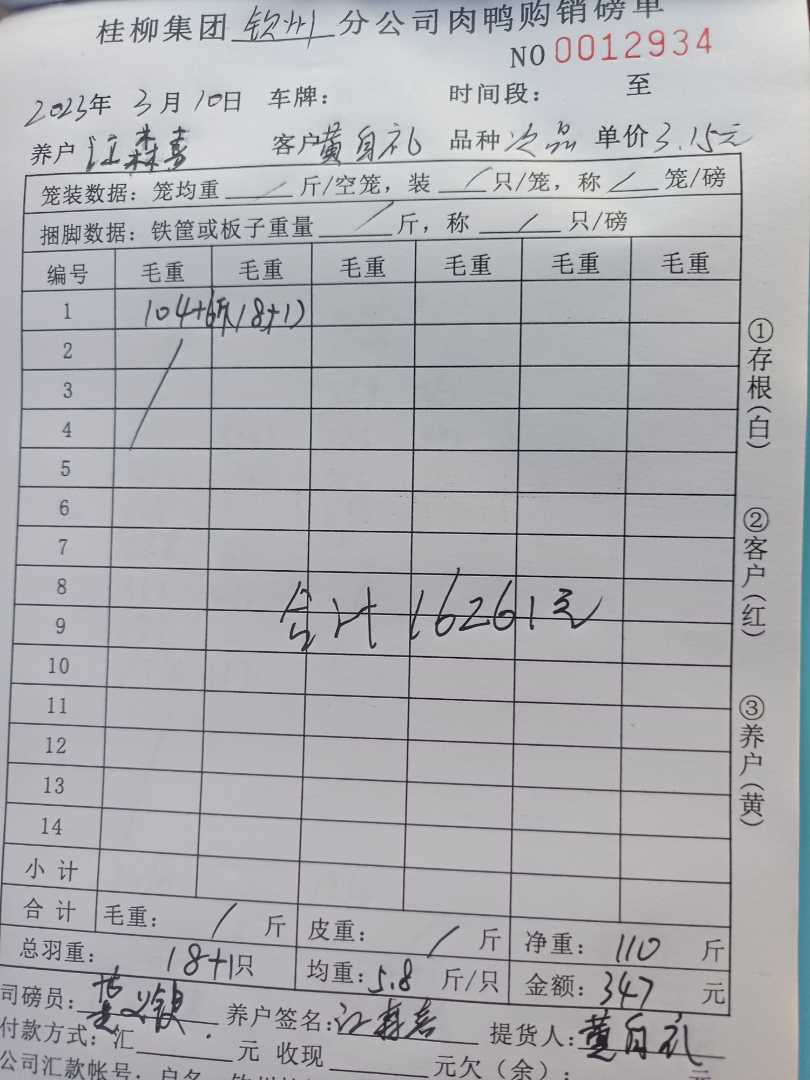 桂柳集团 钦州 分公司肉鸭购销磅单
NO 0012934
2023年 3月 10日 车牌： 时间段： 至
养户 江森喜 客户 黄自礼 品种 次品 单价 3.15元
笼装数据：笼均重 / 斤/空笼，装 / 只/笼，称 / 笼/磅
捆脚数据：铁筐或板子重量 / 斤，称 / 只/磅
编号 毛重 毛重 毛重 毛重 毛重 毛重
1 104+6斤(18+1)
2
3
4
5
6
7
8
合计 16261元
9
10
11
12
13
14
小计
合计 毛重： / 斤 皮重： / 斤 净重： 110 斤
总羽重： 18+1只 均重：5.8 斤/只 金额：347 元
司磅员： 养户签名：江森喜 提货人：黄自礼
付款方式：汇 元 收现 元欠（余）： 元
公司汇款帐号：户名：钦州
①存根（白）
②客户（红）
③养户（黄）